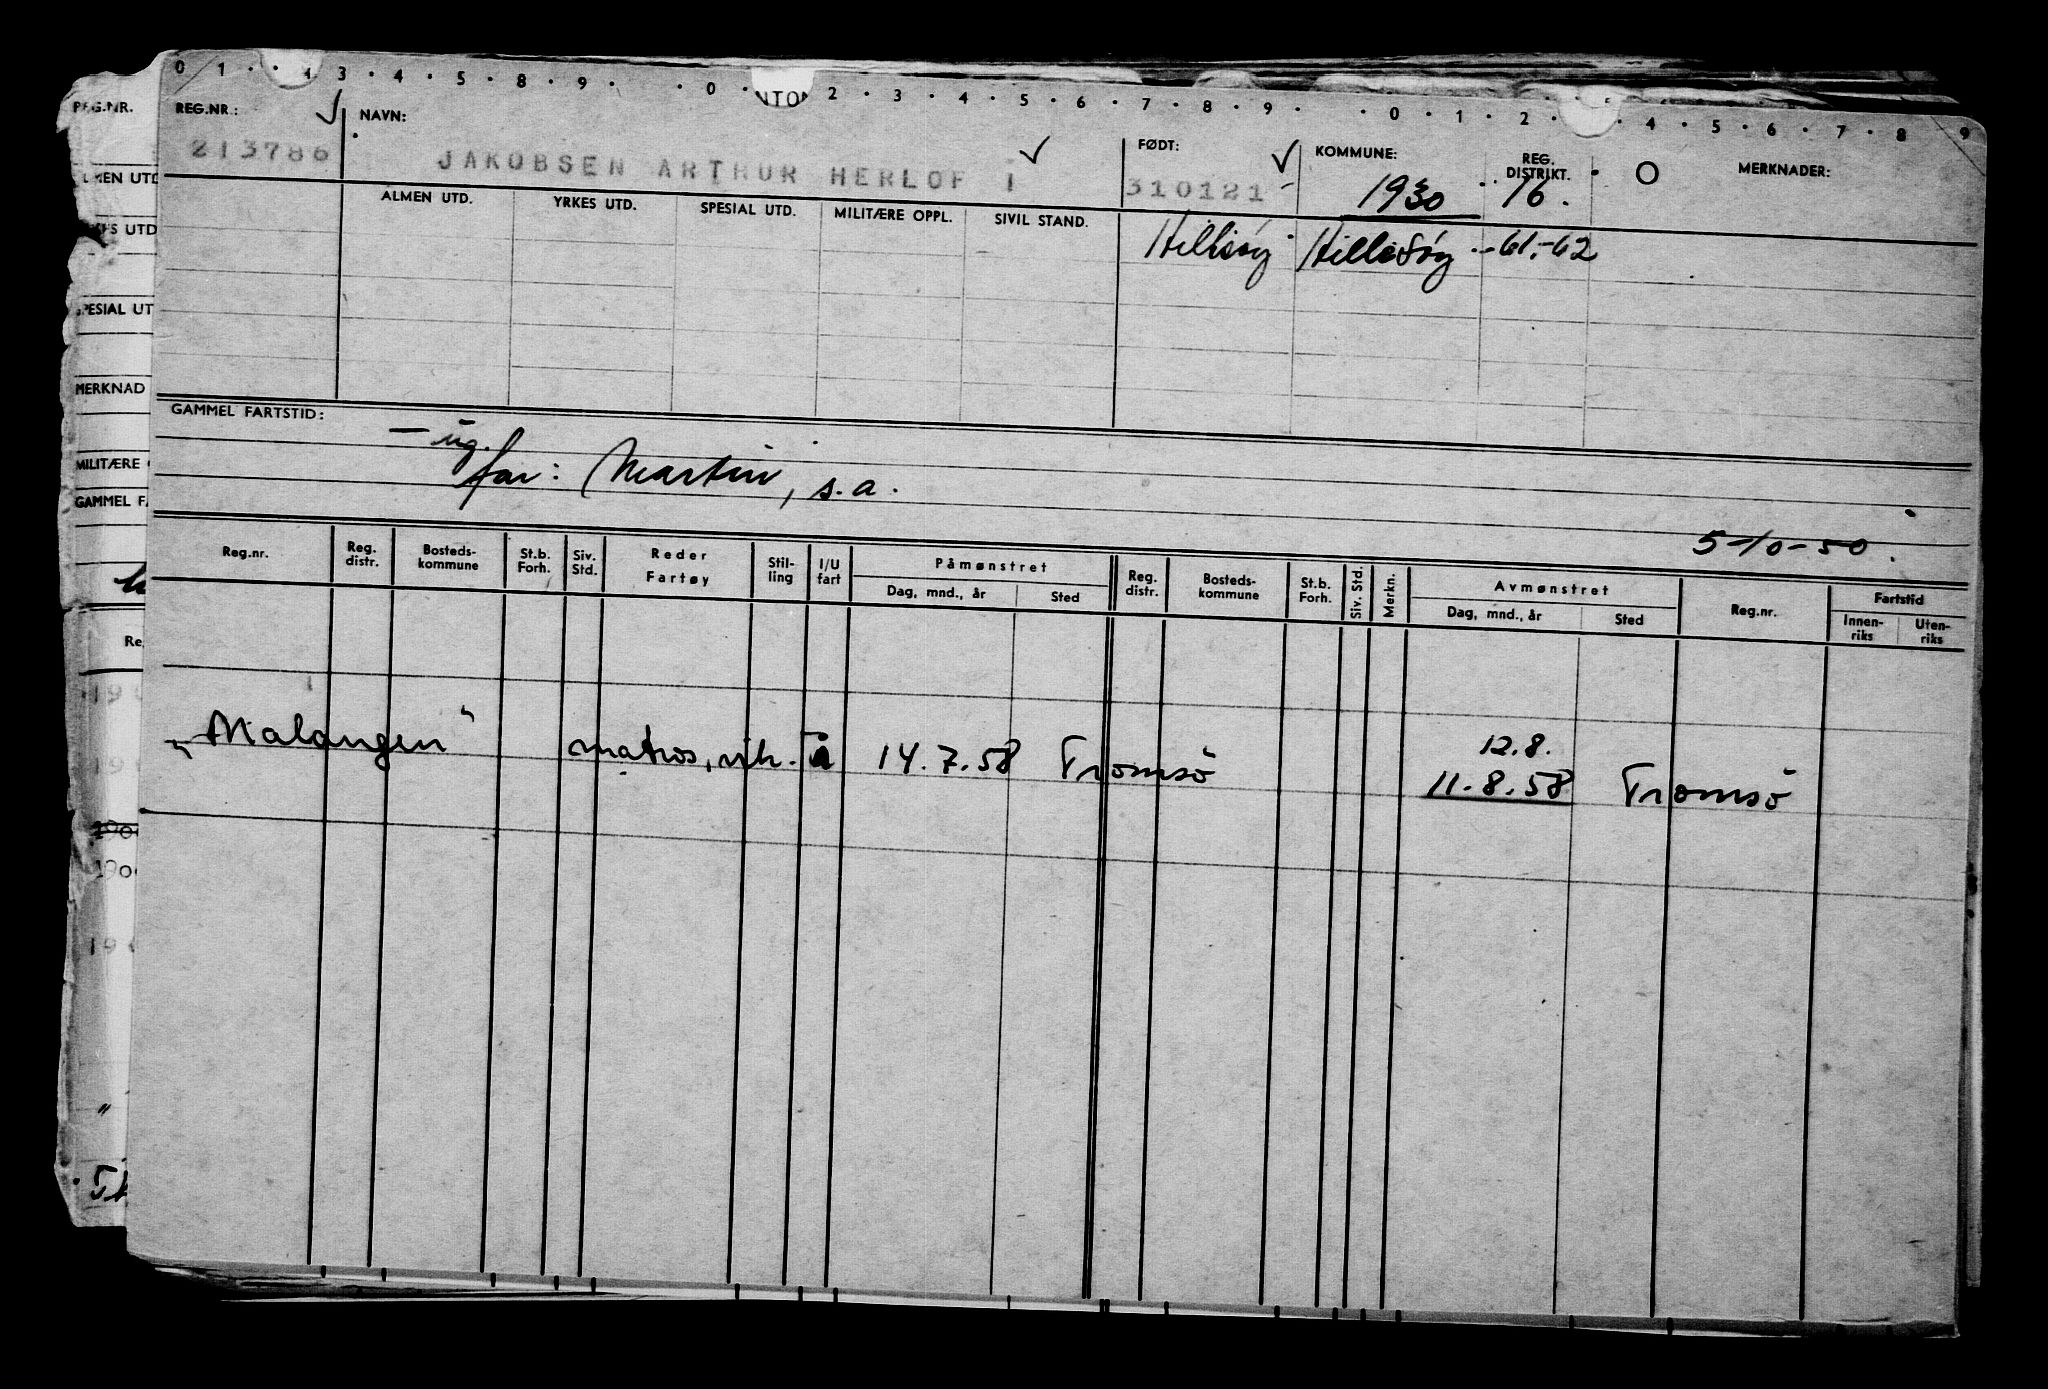 0 1 · · 4 3 · 4 · 5 · 8 · 9 · · 0 · NTON 2 · 3 · 4 · 5 · 6 · 7 · 8 · 9 · · 0 · 1 · 2 · · 4 · 5 · 6 · 7 · 8 9
REG.NR.: NAVN: FØDT: KOMMUNE: REG. DISTRIKT. MERKNADER:
213786 JAKOBSEN ARTHUR HERLOF I 310121 1930 16.
ALMEN UTD. YRKES UTD. SPESIAL UTD. MILITÆRE OPPL. SIVIL STAND.
Hillisøy Hillisøy 61.-62
GAMMEL FARTSTID:
— ug.
far: Martin, s.a.
5-10-50.
Reg.nr. Reg. distr. Bosteds- kommune St.b. Forh. Siv. Std. Reder Fartøy Stil- ling I/U fart Påmønstret Dag, mnd., år Sted Reg. distr. Bosteds- kommune St.b. Forh. Siv. Std. Merkn. Avmønstret Dag, mnd., år Sted Reg.nr. Fartstid Innen- riks Uten- riks
12.8.
„Malangen" matros, vik. 14.7.58 Tromsø 11.8.58 Tromsø
REG.NR.
MEN UTD
S UTD
SPESIAL UT
MERKNAD
MILITÆRE
GAMMEL FA
Re